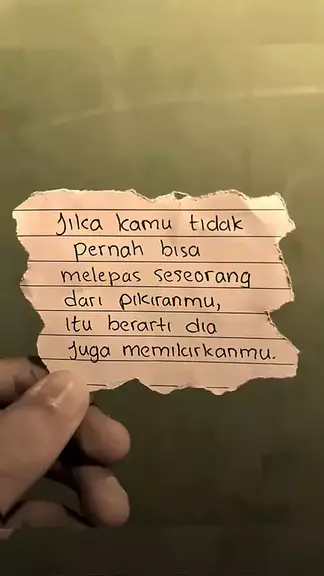 Jika kamu tidak
pernah bisa
melepas seseorang
dari pikiranmu,
itu berarti dia
juga memikirkanmu.